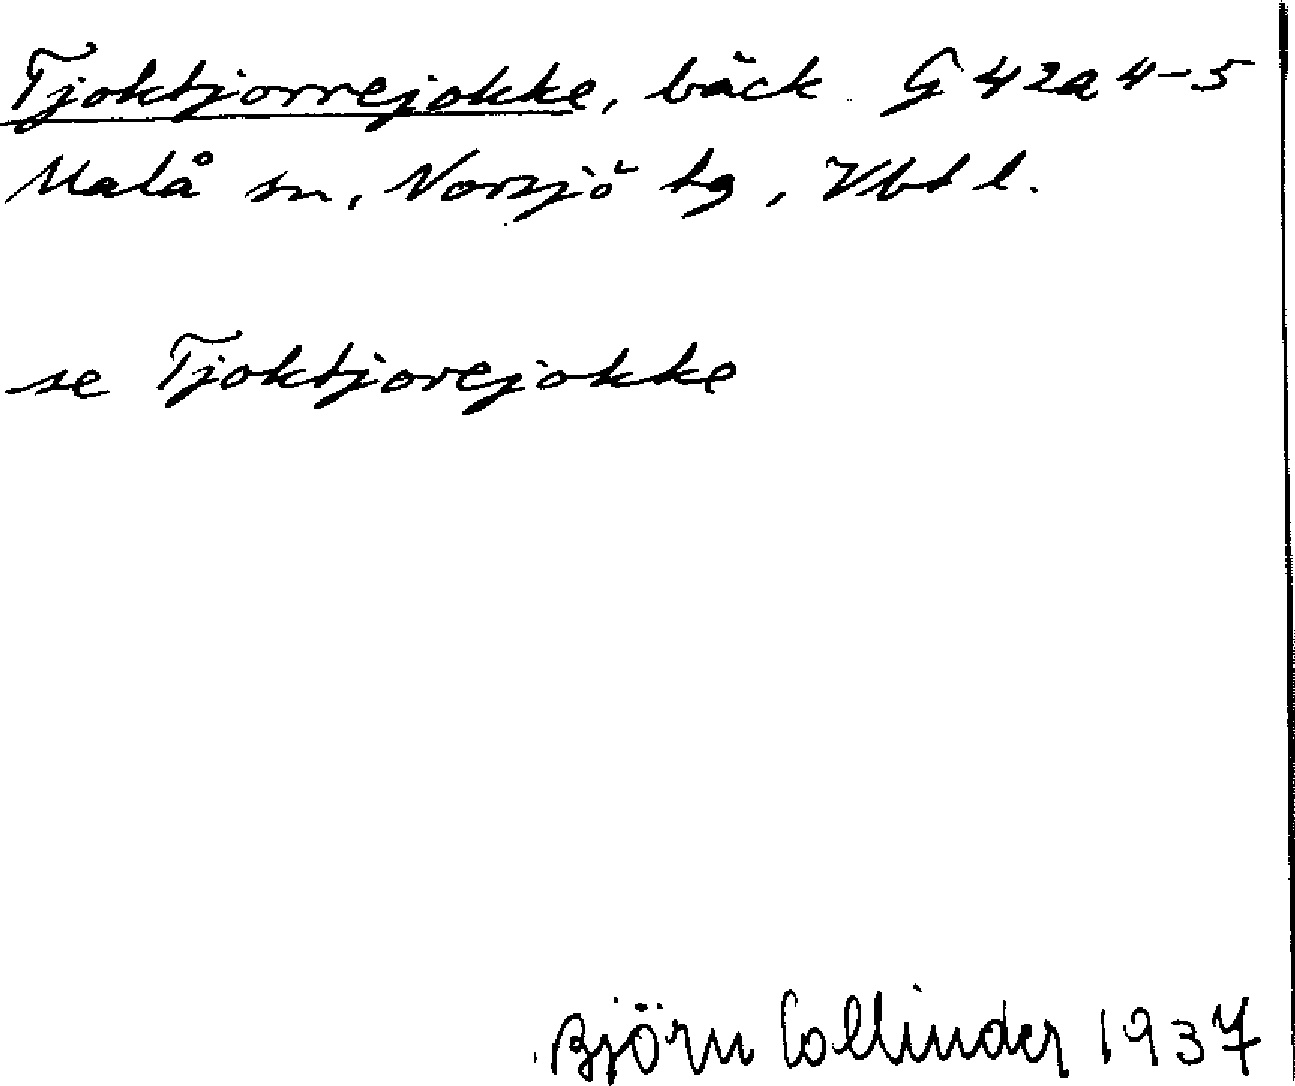 Tjoktjorrejokke, bäck G 42a 4-5
Malå sn, Norsjö tg, Vbt l.
se Tjoktjorejokke
Björn Collinder 1937